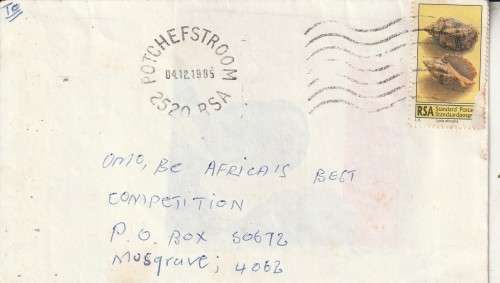 To
POTCHEFSTROOM
04.12.1995
2520 RSA
RSA Standard Postage
Standaardposgeld
OMO, BE AFRICA'S BEST
COMPETITION
P.O. BOX 50672
Mosgrave, 4062